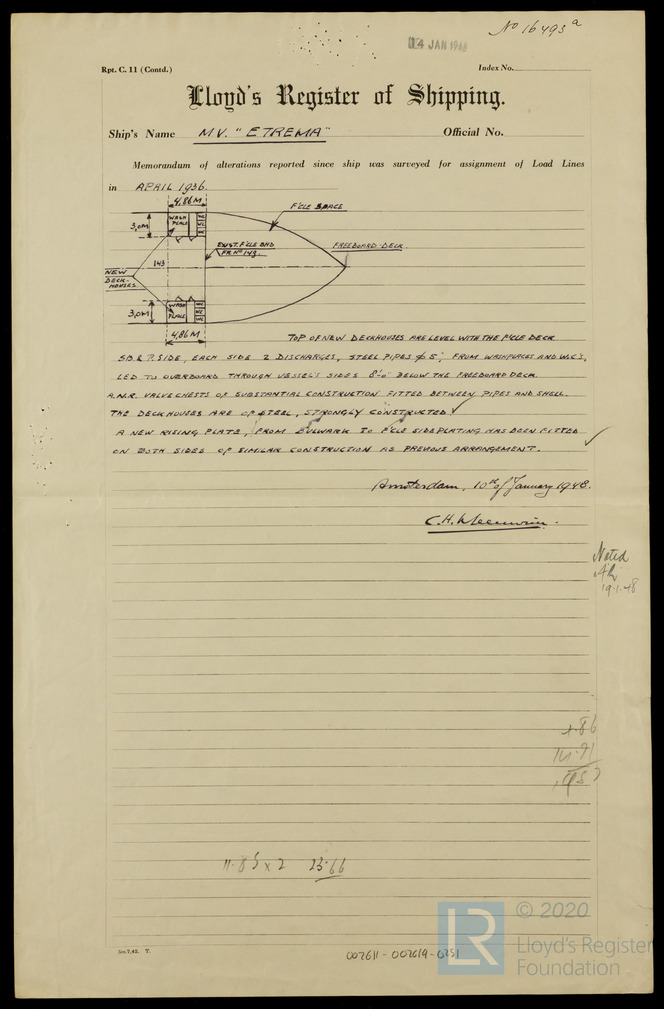 No 16493a
14 JAN 1948
Rpt. C. 11 (Contd.)
Index No.
Lloyd's Register of Shipping.
Ship's Name MV. "ETREMA" Official No.
Memorandum of alterations reported since ship was surveyed for assignment of Load Lines
in APRIL 1936.
4,86 M
F'CLE SPACE
3,0M
WASH PLACE
EXIST. F'CLE BHD
FR No 143.
FREEBOARD-DECK.
143
NEW DECK-HOUSES
3,0M
WASH PLACE
WC
WC
WC
4,86 M
TOP OF NEW DECKHOUSES ARE LEVEL WITH THE F'CLE DECK
SB & P. SIDE, EACH SIDE 2 DISCHARGES, STEEL PIPES φ 5", FROM WASHPLACES AND W.C's,
LED TO OVERBOARD THROUGH VESSEL'S SIDES BELOW THE FREEBOARD DECK.
A.N.R. VALVE CHESTS OF SUBSTANTIAL CONSTRUCTION FITTED BETWEEN PIPES AND SHELL.
THE DECKHOUSES ARE OF STEEL, STRONGLY CONSTRUCTED
A NEW RISING PLATE, FROM BULWARK TO F'CLE SIDEPLATING HAS BEEN FITTED
ON BOTH SIDES OF SIMILAR CONSTRUCTION AS PREVIOUS ARRANGEMENT.
Amsterdam, 10th of January 1948.
C.H.
Noted
19.1.48
11.83 x 2 23.66
5m.7,42. T.
002611-002619-0251
LR
© 2020
Lloyd's Register
Foundation